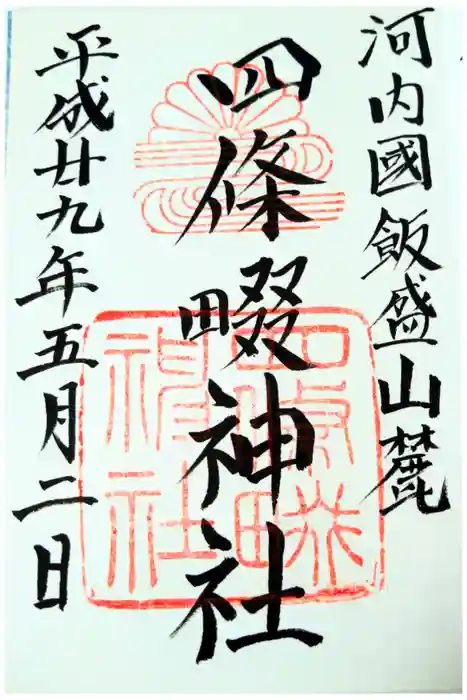 河内國飯盛山麓
四條畷神社
平成廿九年五月二日
四條畷
神社